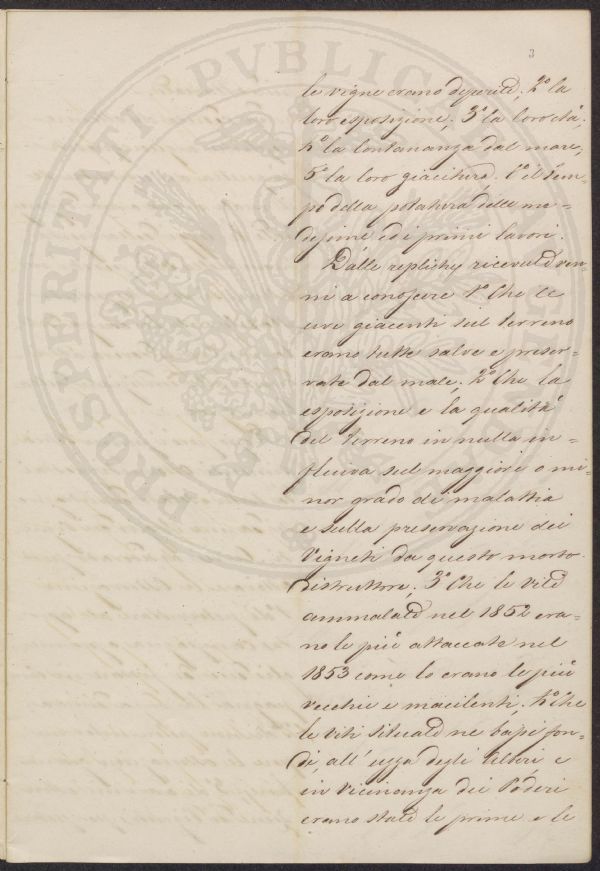 3
le vigne erano deperite; 2º la
loro esposizione; 3º la loro età;
4º la lontananza dal mare;
5º la loro giacitura. 6º il tem-
po della potatura delle me-
desime ed i primi lavori.
Dalle repliche ricevute ven-
ni a conoscere 1º Che le
uve giacenti sul terreno
erano tutte salve e preser-
vate dal male; 2º Che la
esposizione e la qualità
del terreno in nulla in=
fluiva sul maggiore o mi-
nor grado di malattia
e sulla preservazione dei
Vigneti da questo morbo
distruttore; 3º Che le viti
ammalate nel 1852 era=
no le più attaccate nel
1853 come lo erano le più
vecchie e macilenti; 4º Che
le viti situate ne bassi fon-
di, all' uggia degli Alberi e
in vicinanza dei Poderi
erano state le prime e le
PROSPERITATI PVBLICAE